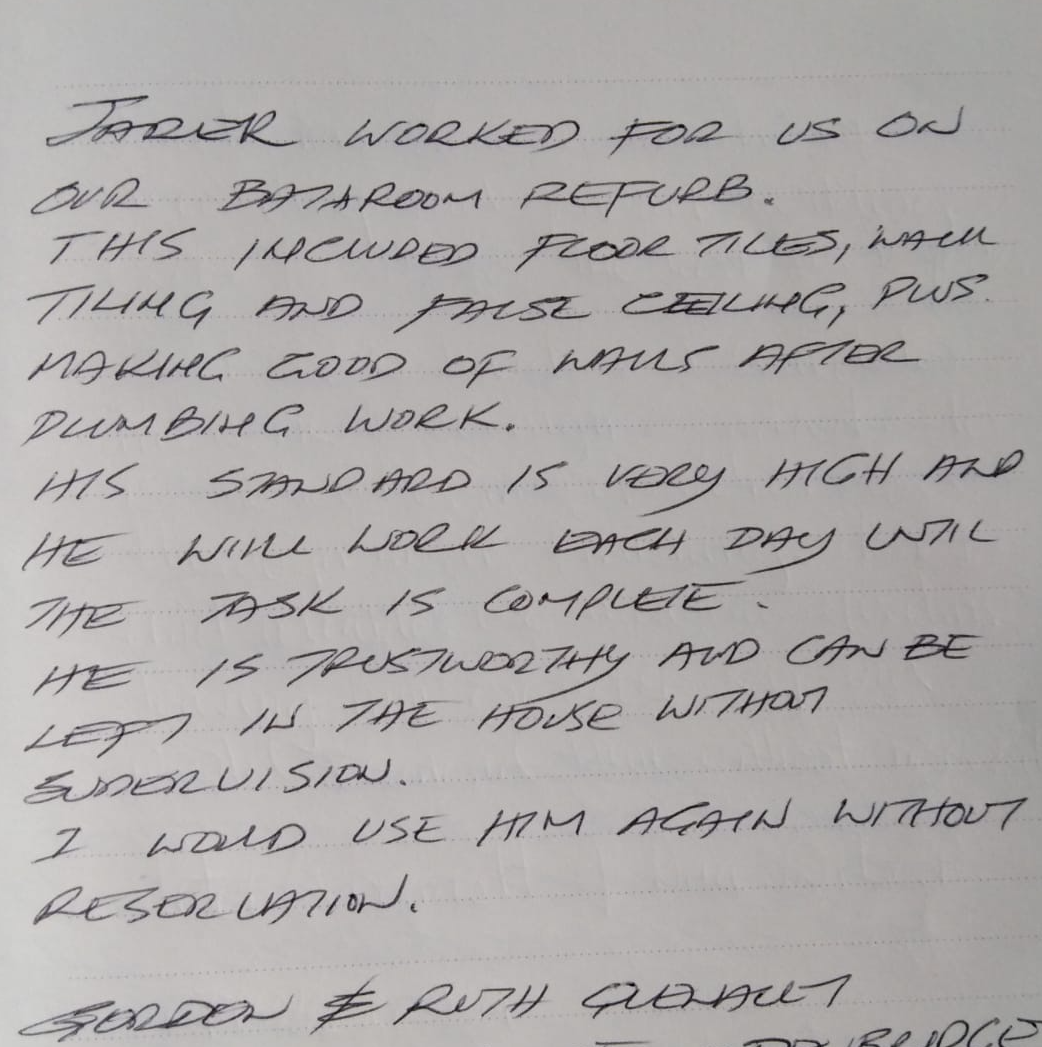 JARER WORKED FOR US ON
OUR BATHROOM REFURB.
THIS INCLUDED FLOOR TILES, WALL
TILING AND FALSE CEILING, PLUS
MAKING GOOD OF WALLS AFTER
PLUMBING WORK.
HIS STANDARD IS VERY HIGH AND
HE WILL WORK EACH DAY UNTIL
THE TASK IS COMPLETE.
HE IS TRUSTWORTHY AND CAN BE
LEFT IN THE HOUSE WITHOUT
SUPERVISION.
I WOULD USE HIM AGAIN WITHOUT
RESERVATION.
GORDON & RUTH